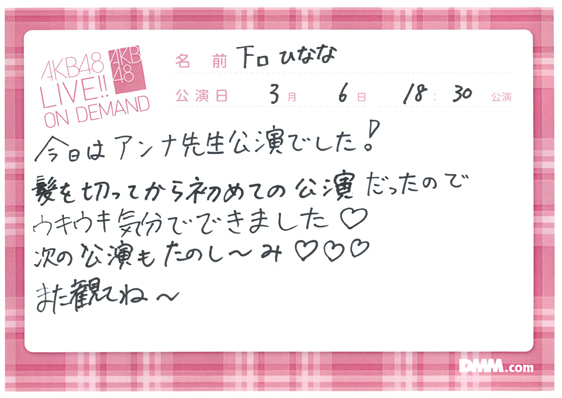 AKB48
LIVE!!
ON DEMAND
AKB
48
名前 下口ひなな
公演日 3月 6日 18:30 公演
今日はアンナ先生公演でした!
髪を切ってから初めての公演だったので
ウキウキ気分でできました♡
次の公演もたのし〜み♡♡♡
また観てね〜
DMM.com